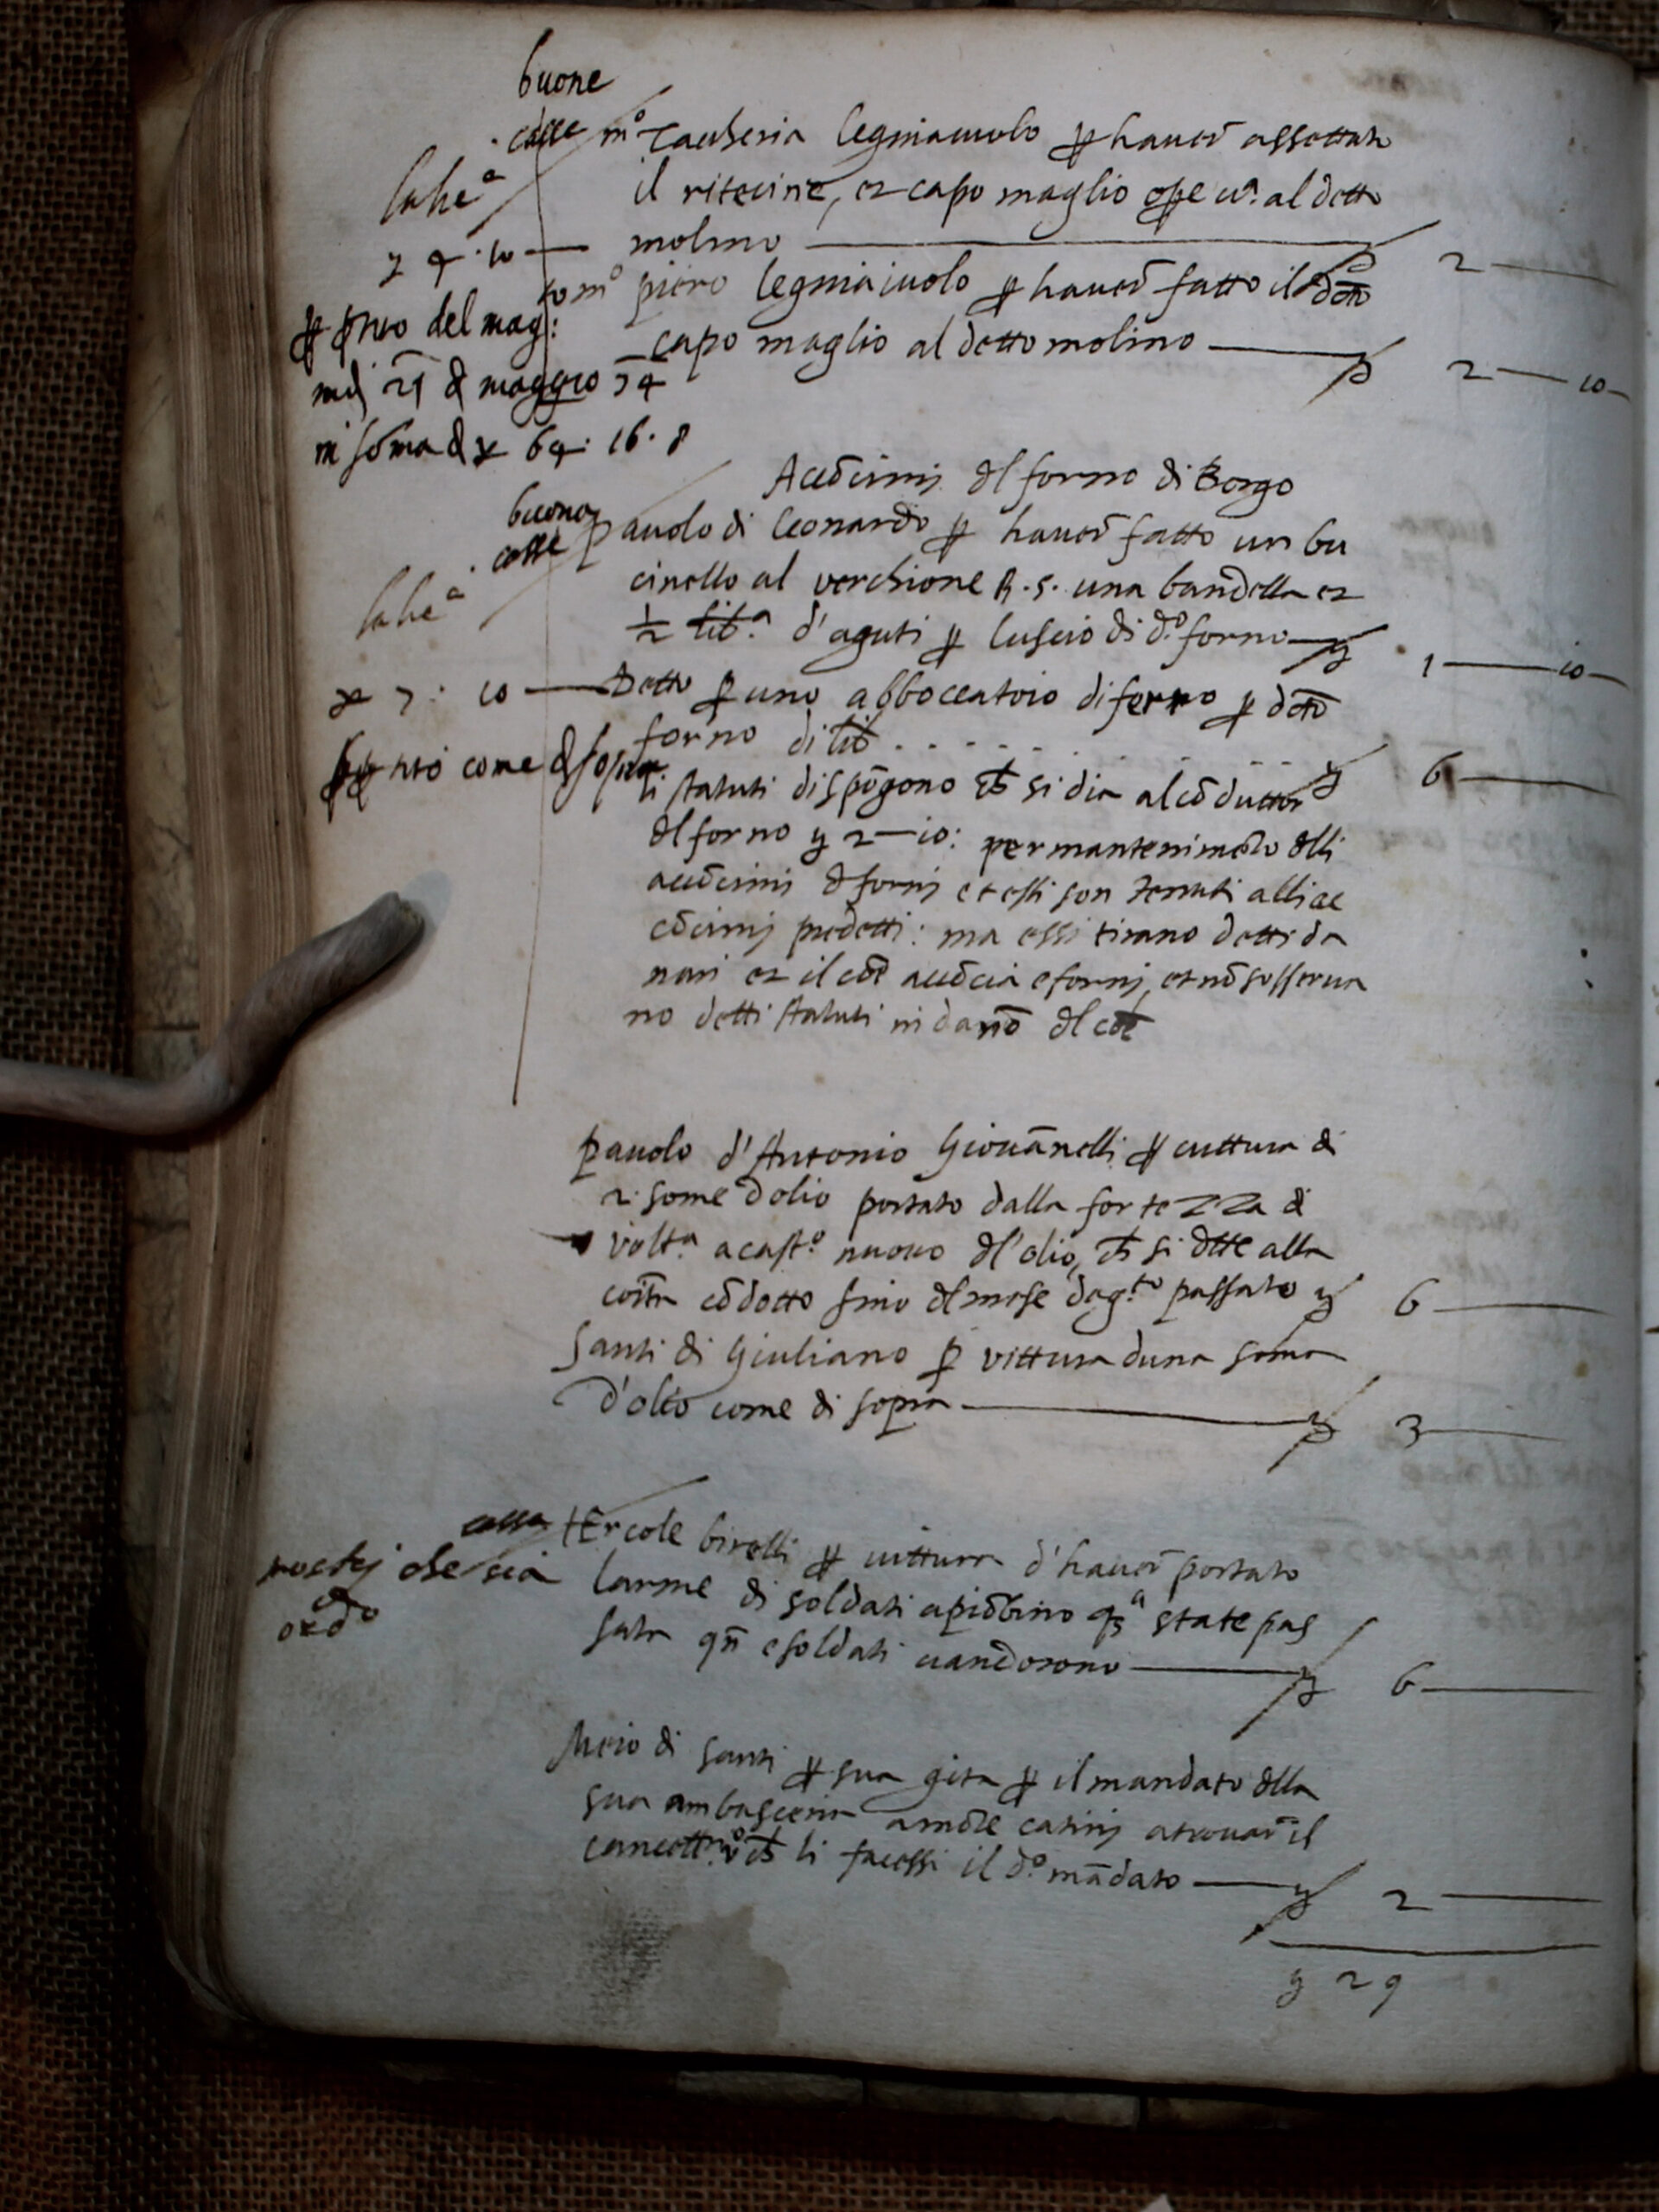 buone
casse m.o Zacheria legniaiuolo p haver assettato
lahe a
il ritecine, et capo maglio ope u.a al detto
y 4 · 10 — molino — y 2 —
m.o piero legniaiuolo p haver fatto il detto
p del mag:
capo maglio al detto molino — y 2 — 10 —
21 di maggio 74
in soma di y 64 · 16 · 8
Accōcimj dl forno di Borgo
buona
casse
pauolo di leonardo p haver fatto un bu
cinello al verchione R. s. una bandella et
lahe a
1/2 lib.a d'aguti p luscio di d.o forno — y 1 — 10 —
y 7 : 10 — Detto p uno abboccatoio di ferro p detto
forno di lib . . . . . . y 6 —
come di sopra
li statuti dispōgono ch si dia al cōduttor
dl forno y 2 — 10 : per mantenimēto dlli
accōcimj d fornj et essi son tenuti alli ac
cōcimj predetti : ma essi tirano detti da
nari et il cōe accōcia e fornj, et nō sosserva
no detti statuti in dañō dl cōe
pauolo d'Antonio Giovānelli p vittura di
2 some dolio portato dalla fortezza di
volt.a a cast.o nuovo dl'olio, ch si dtte alla
cōita cōdotto fino dl mese dag.to passato y 6 —
Santi di Giuliano p vittura duna soma
d'olio come di sopra — y 3 —
cassa
Hercole birelli p vittura d'haver portato
che sia
larme di soldati a piōbino qsa state pas
sata qn e soldati uandorono — y 6 —
Meio di santi p sua gita p il mandato dlla
sua ambasceria a mōte catinj a trovar il
ch li facessi il d.o mādato — y 2 —
y 29